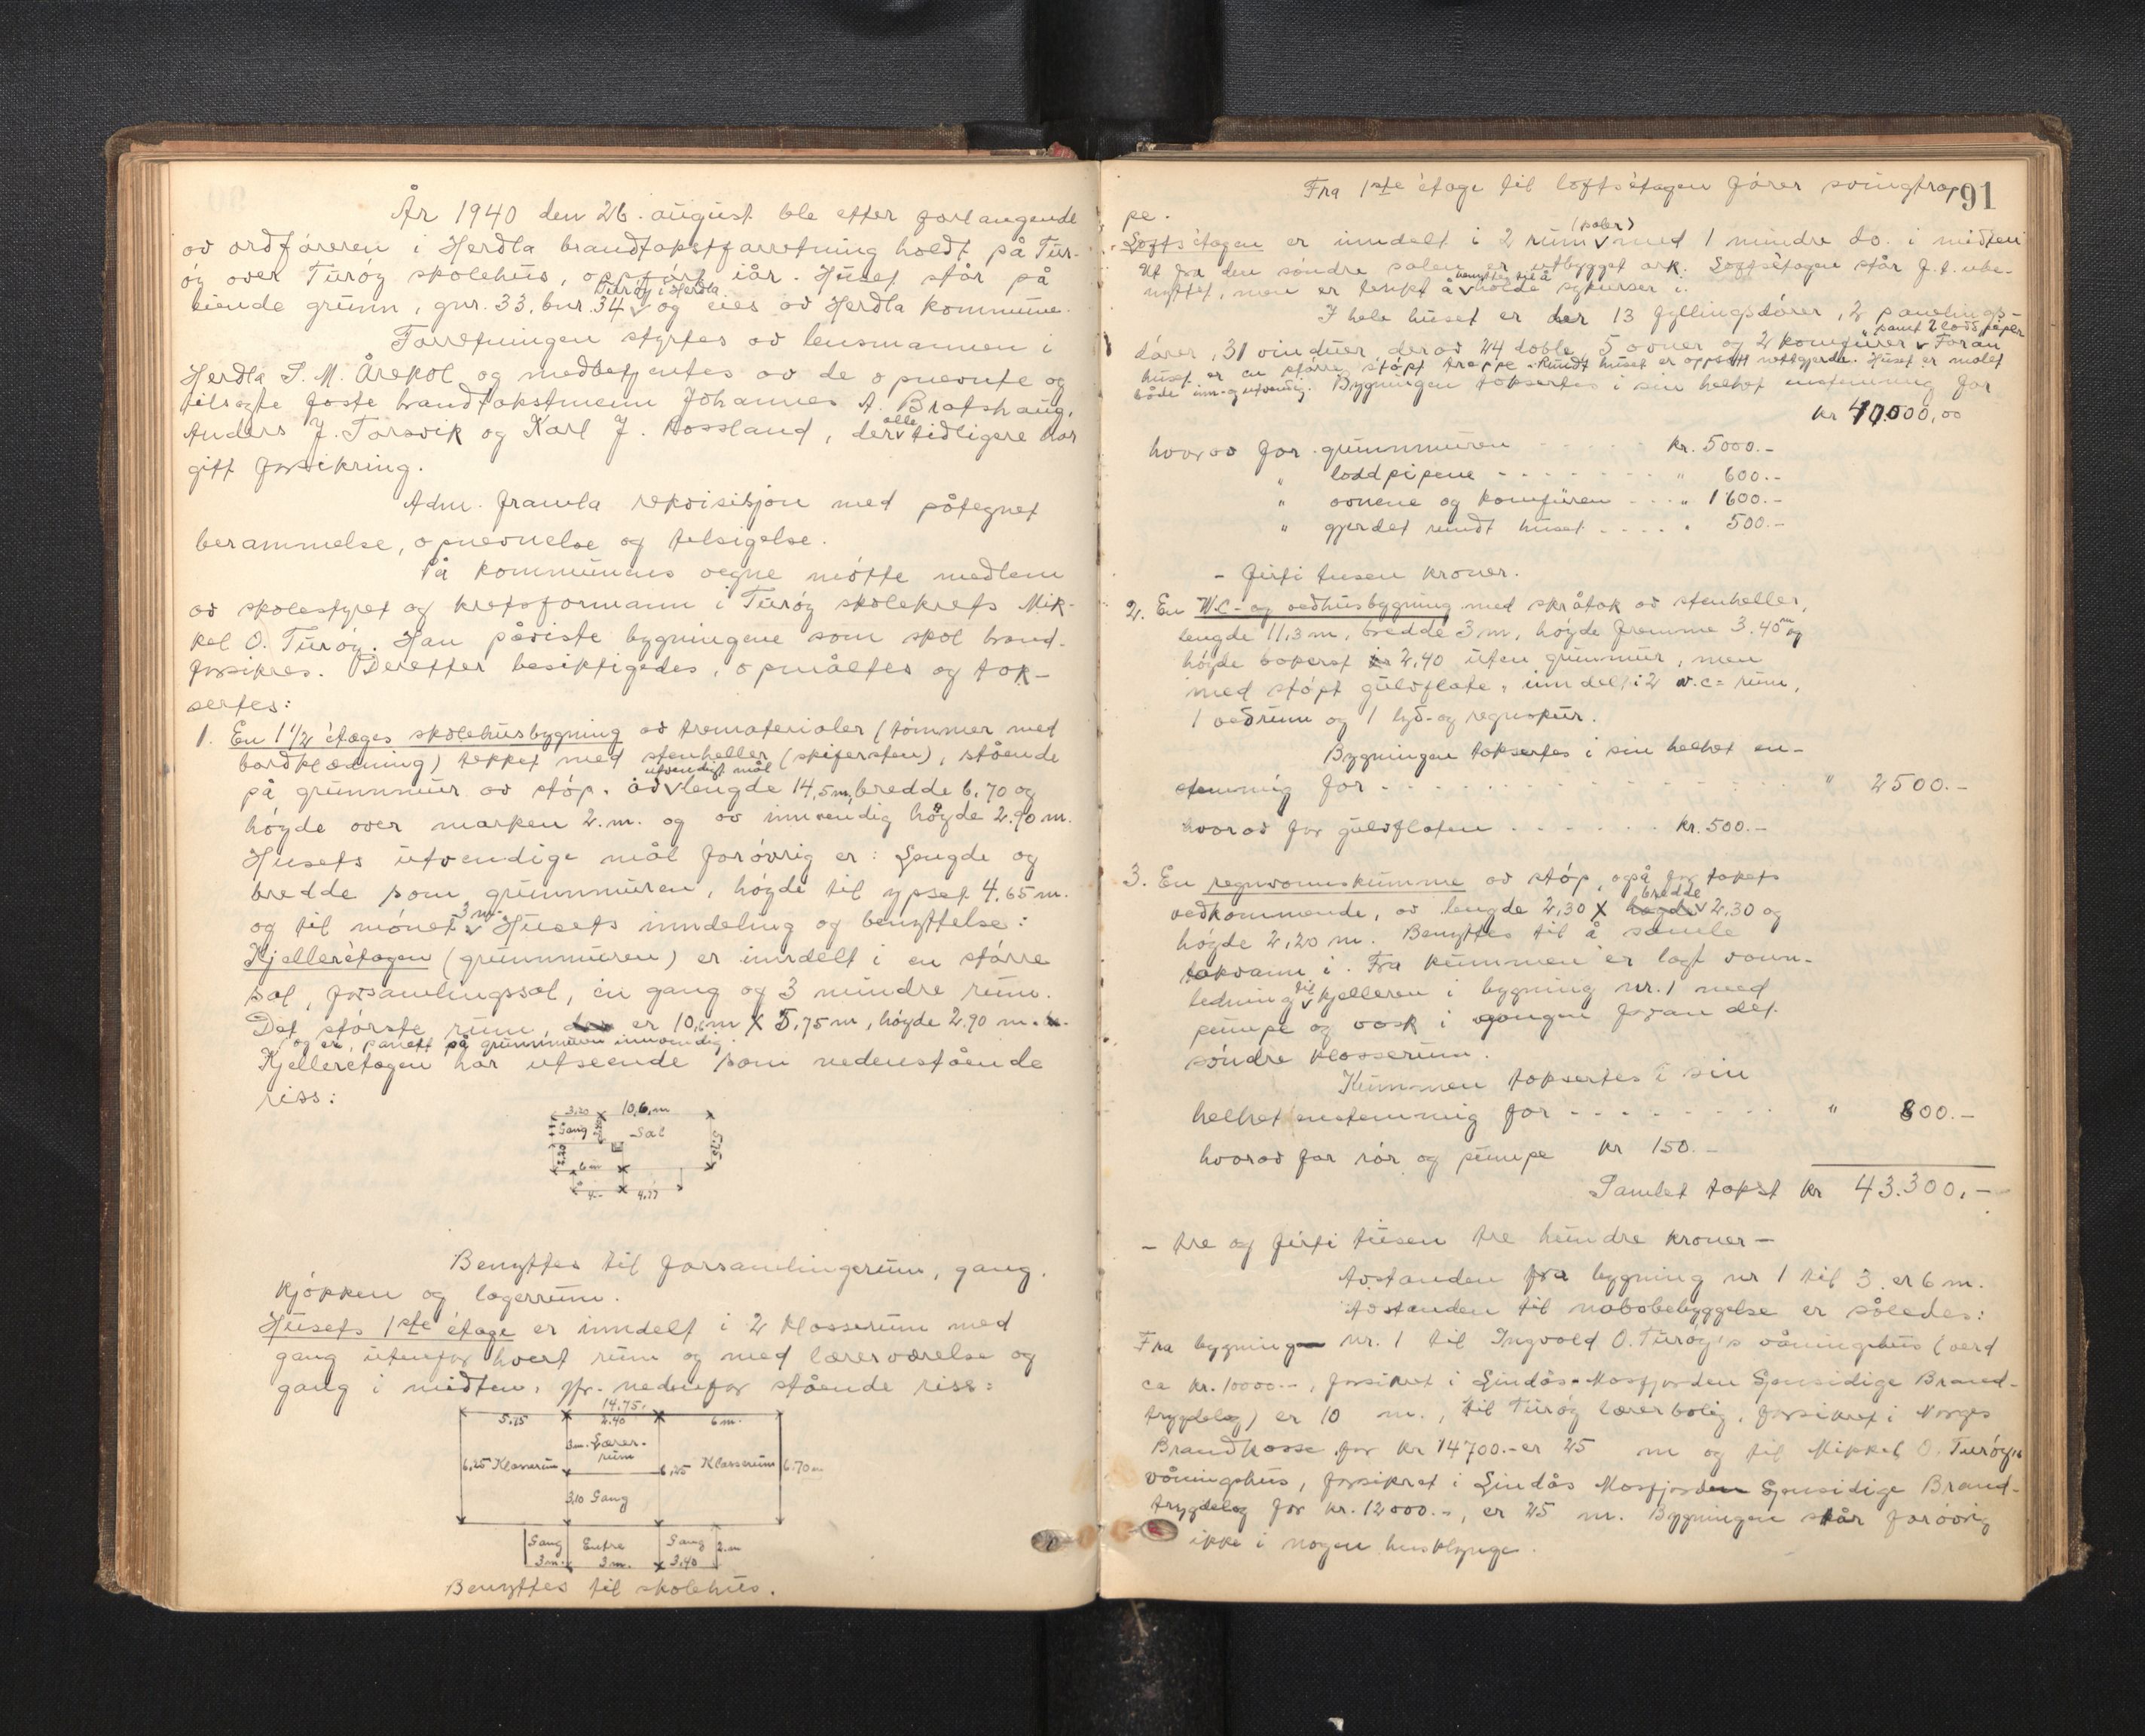 År 1940 den 26. august ble etter forlangende
av ordføreren i Herdla brandtakstforretning holdt på Tur-
øy over Turøy skolehus, oppført iår. Huset står på
eiende grunn, gnr. 33, bnr. 34 Turøy i Herdla og eies av Herdla kommune.
Forretningen styrtes av lensmannen i
Herdla S. M. Årekol og medbetjentes av de opnevnte og
tilsagte faste brandtakstmenn Johannes A. Bratshaug,
Anders J. Torsvik og Karl J. Rossland, der alle tidligere har
gitt forsikring.
Adm. framla rekvisisjon med påtegnet
berammelse, opnevnelse og tilsigelse.
På kommunens vegne møtte medlem
av skolestyret og kretsformann i Turøy skolekrets Mik-
kel O. Turøy. Han påviste bygningene som skal brand-
forsikres. Deretter besiktigedes, opmåltes og tak-
sertes:
1. En 1 1/2 étages skolehusbygning av trematerialer (tømmer med
bordklædning) tekket med stenheller (skifersten), stående
på grunnmur av støp. av utvendigt mål lengde 14,5 m, bredde 6.70 og
høyde over marken 2. m. og av innvendig høyde 2.90 m.
Husets utvendige mål forøvrig er: Lengde og
bredde som grunnmuren, høyde til ypset 4.65 m.
og til mønet 3 m. Husets inndeling og benyttelse:
Kjelleretagen (grunnmuren) er inndelt i en større
sal, forsamlingssal, en gang og 3 mindre rum.
Det største rum, er 10,6m X 5,75 m, høyde 2.90 m.
og er panelt på grunnmuren innvendig.
Kjelleretagen har utseende som nedenstående
riss:
3,20 10,6 m
Gang Sal
5,75
6 m
4,27
Benyttes til forsamlingsrum, gang,
kjøkken og lagerrum.
Husets 1ste étage er inndelt i 2 klasserum med
gang utenfor hvert rum og med lærerværelse og
gang i midten, jfr. nedenfor stående riss:
14,75
5,75 2.40 6 m.
3m. Lærer-
rum
6,25 Klasserum 6,25 Klasserum 6.70 m
3,10 Gang
Gang Entre Gang 2. m
3 m. 3 m. 3,40
Benyttes til skolehus.
91
Fra 1ste étage til loftsétagen fører svingtrap-
pe.
Loftsétagen er inndelt i 2 rum (saler) med 1 mindre do. i midten
Ut fra den søndre salen er utbygget ark. Loftsétagen står f.t. ube-
nyttet, men er tenkt å benyttes til å holde sykurser i.
I hele huset er der 13 fyllingsdører, 2 panelings-
dører, 31 vinduer, derav 24 doble, 5 ovner og 2 komfurer samt 2 loddpiper. Foran
huset er en større støpt trappe. Rundt huset er oppsatt nettgjerde. Huset er malet
både inn- og utvendig. Bygningen taksertes i sin helhet enstemmig for
kr 40.000,00
hvorav for grunnmuren - - - - - kr. 5000.-
" loddpipene - - - - - - " 600.-
" ovnene og komfuren - - - " 1600.-
" gjerdet rundt huset - - - - " 500.-
- firti tusen kroner.
2. En W.C- og vedhusbygning med skråtak av stenheller,
lengde 11,3 m, bredde 3 m, høyde framme 3.40 m og
høyde bakerst 2.40 uten grunnmur, men
med støpt gulvflate, inndelt i 2 w.c = rum,
1 vedrum og 1 lyd- og regnskur.
Bygningen taksertes i sin helhet en-
stemmig for - - - - - " 2500.-
hvorav for gulvflaten - - - - - - kr. 500.-
3. En regnvannskumme av støp, også for takets
vedkommende, av lengde 2,30 X bredde 2,30 og
høyde 2,20 m. Benyttes til å samle
takvann i. Fra kummen er lagt vann-
ledning til kjelleren i bygning nr. 1 med
pumpe og vask i gangen foran det
søndre klasserum.
Kummen taksertes i sin
helhet enstemmig for - - - - - - " 800.-
hvorav for rør og pumpe kr 150.-
Samlet takst kr 43.300,-
- tre og firti tusen tre hundre kroner -
Avstanden fra bygning nr 1 til 3 er 6 m.
Avstanden til nabobebyggelse er således:
Fra bygning nr. 1 til Ingvald O. Turøy's våningshus (verd
ca kr. 10000.-, forsikret i Lindås-Masfjorden Gjensidige Brand-
trygdelag) er 10 m., til Turøy lærerbolig, forsikret i Norges
Brandkasse for kr 14700.- er 25 m og til Mikkel O. Turøys
våningshus, forsikret i Lindås Masfjorden Gjensidige Brand-
trygdelag for kr. 12000.-, er 25 m. Bygningen står forøvrig
ikke i nogen husklynge.